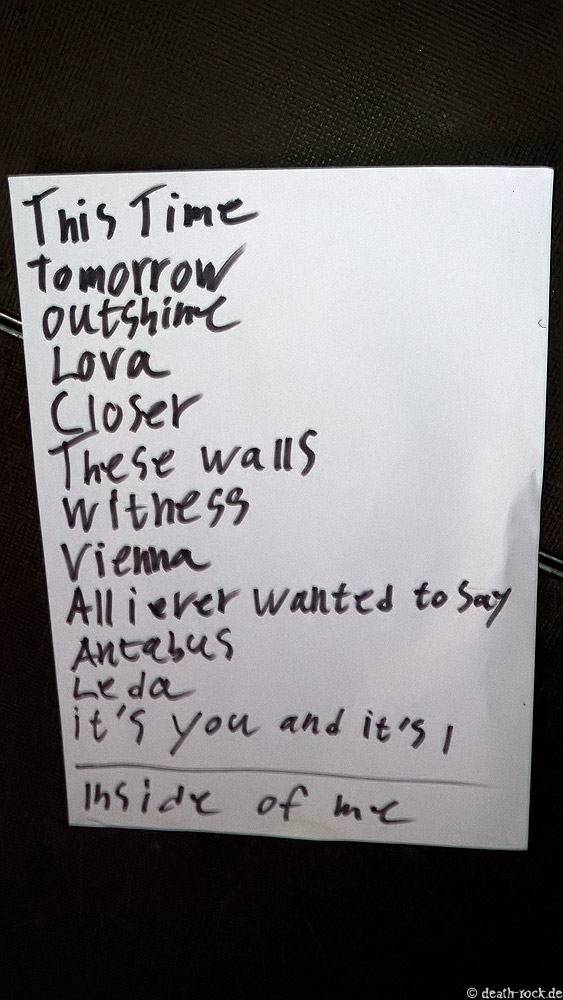 This Time
tomorrow
outshine
Lova
Closer
These walls
witness
Vienna
All i ever wanted to say
Antabus
Leda
it's you and it's I
inside of me
© death-rock.de